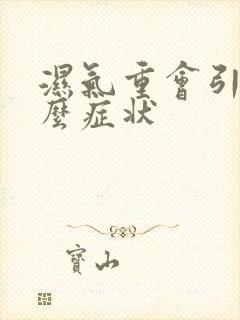 濕氣重會引
麼症狀
寶山